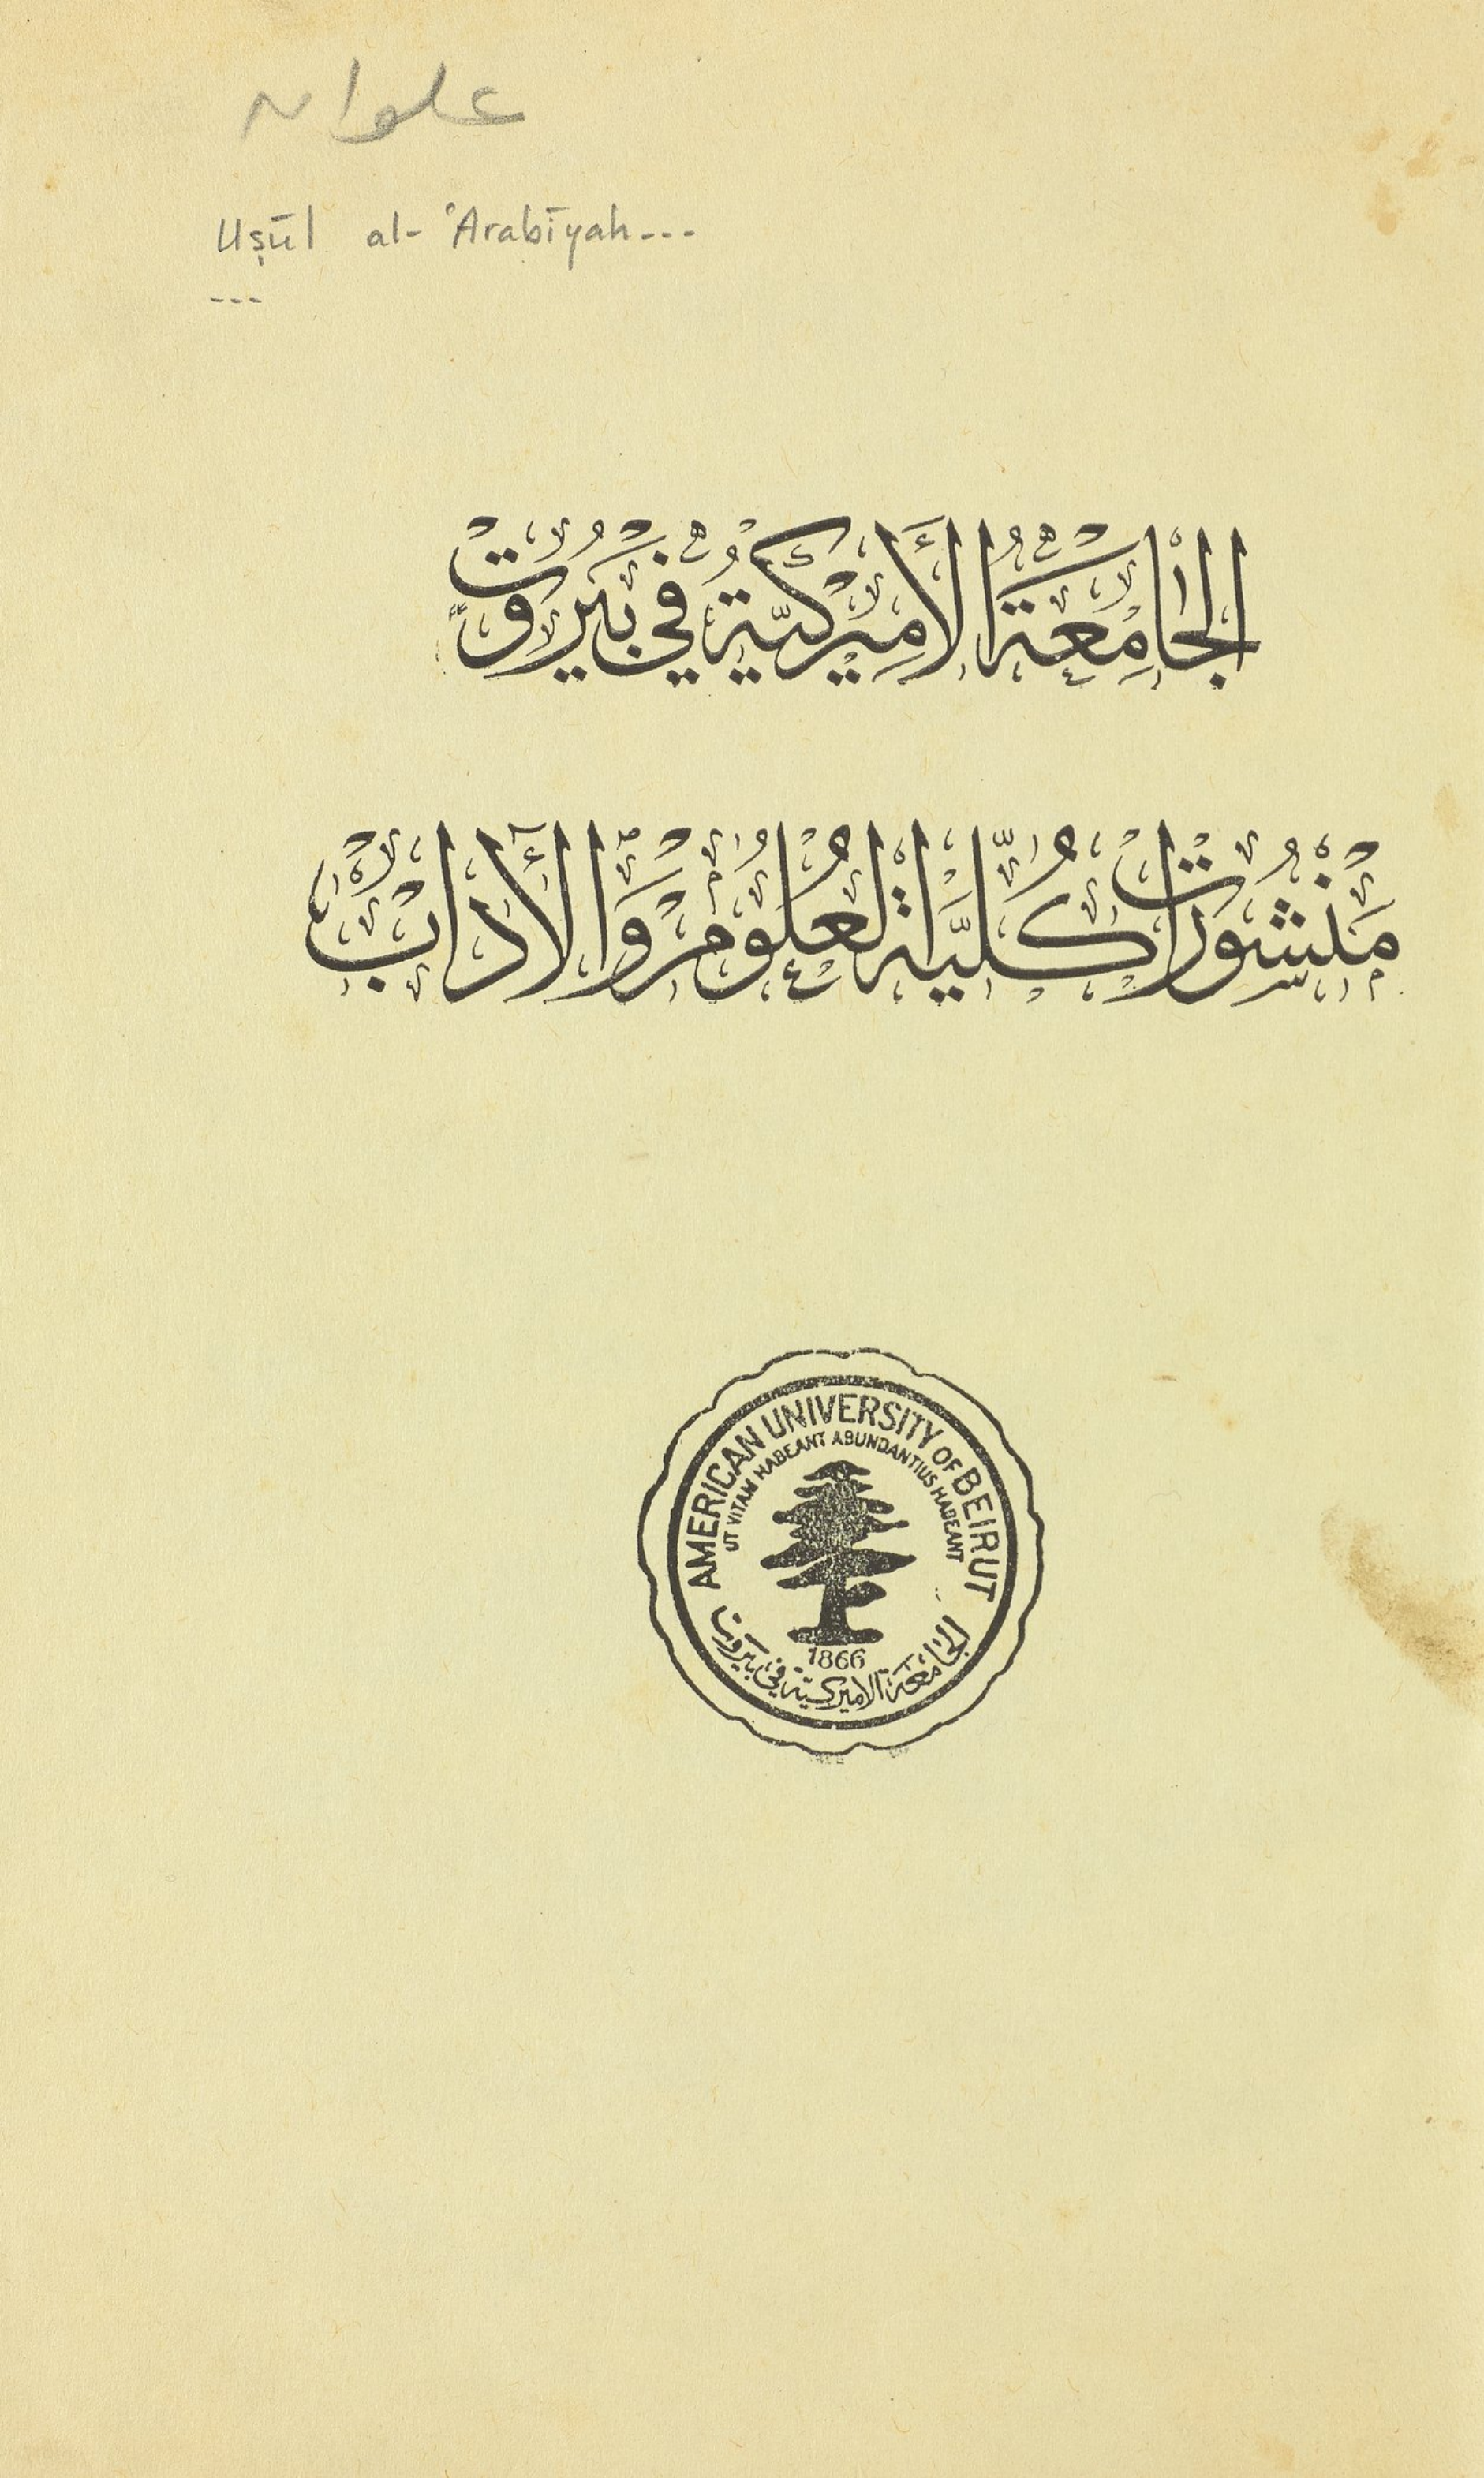 علوان
Uṣūl al-ʿArabīyah---
---
الجامعة الأميركية في بيروت
منشورات كلية العلوم والآداب
AMERICAN UNIVERSITY OF BEIRUT
UT VITAM HABEANT ABUNDANTIUS HABEANT
1866
الجامعة الاميركية في بيروت